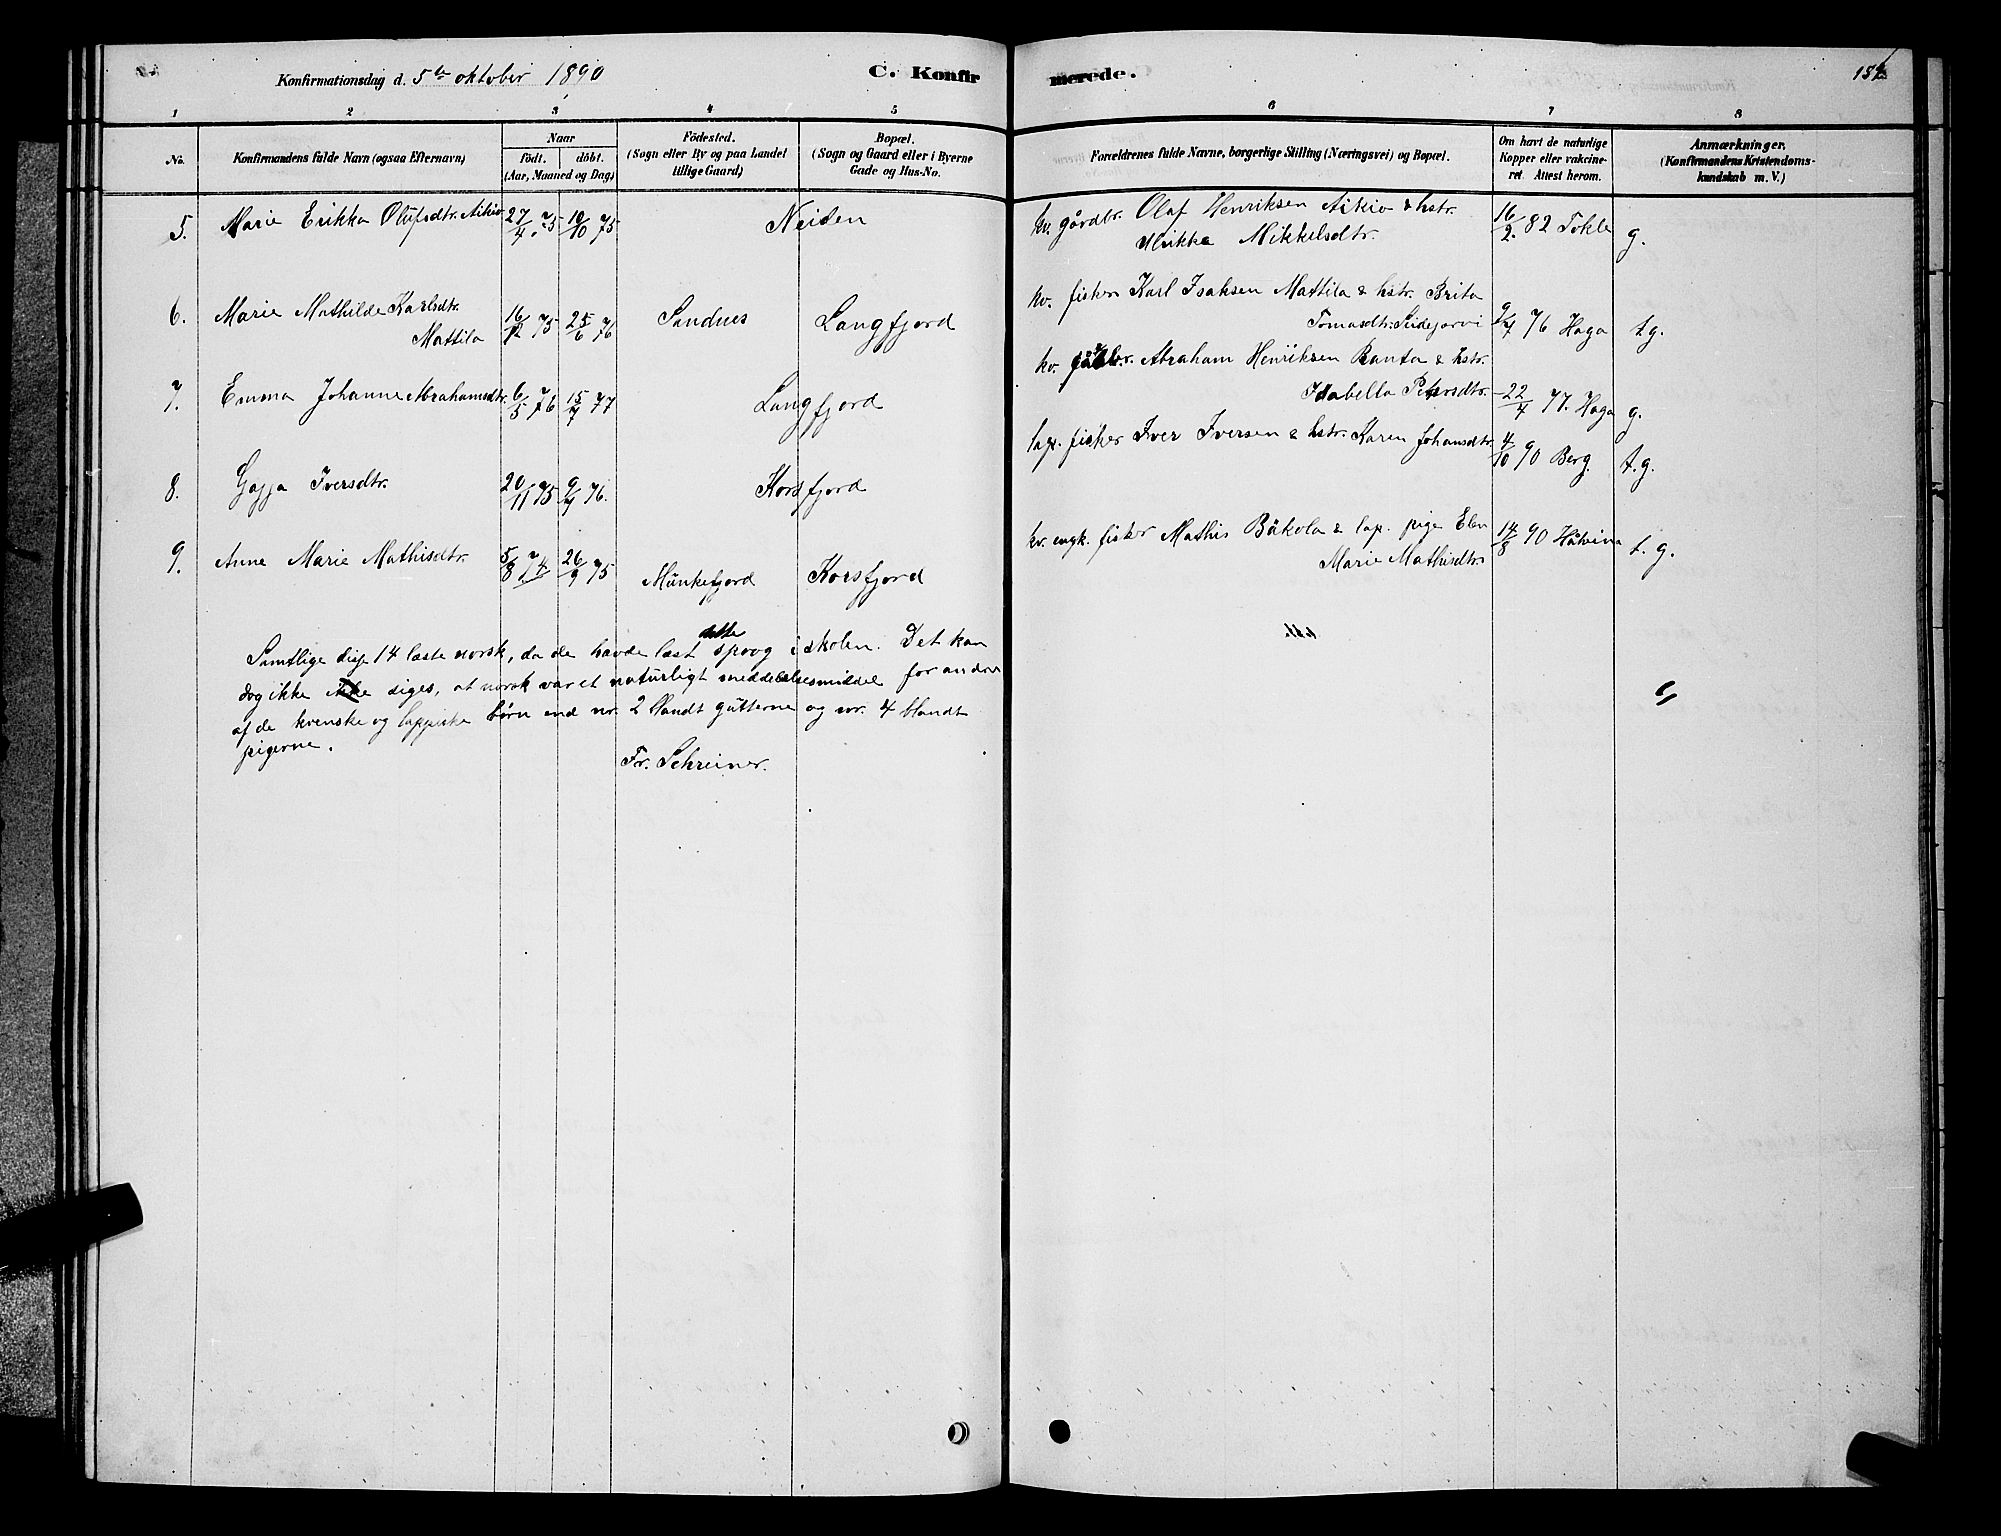 Konfirmationsdag d. 5te oktober 1890
C. Konfirmerede.
1 2 3 4 5 6 7 8
No. Konfirmandens fulde Navn (ogsaa Efternavn) Naar født. døbt. (Aar, Maaned og Dag) Fødested. (Sogn eller By og paa Landet tillige Gaard) Bopæl. (Sogn og Gaard eller i Byerne Gade og Hus-No. Forældrenes fulde Navne, borgerlige Stilling (Næringsvei) og Bopæl. Om havt de naturlige Kopper eller vakcineret. Attest herom. Anmærkninger. (Konfirmandens Kristendomskundskab m. V.)
5. Marie Erikka Olufsdtr. Aikio 27/4 75 10/10 75 Neiden kv. gårdbr. Olaf Henriksen Aikio & hstr. 16/2 82 Tokle g.
Ulrikka Mikkelsdtr.
6. Marie Mathilde Karlsdtr. 16/12 75 25/6 76 Sandnes Langfjord kv. fisker Karl Isaksen Mattila & hstr. Brita 9/4 76 Haga t.g.
Mattila Tomasdtr. Seidejarvi
7. Emma Johanne Abrahamsdtr. 6/5 76 15/4 77 Langfjord kv. Abraham Henriksen Ranta & hstr. 22/4 77. Haga g.
Isabella Petersdtr.
8. Gajja Iversdtr. 20/11 75 9/4 76. Korsfjord lap. fisker Iver Iversen & hstr. Karen Johansdtr. 4/10 90 Berg. t.g.
9. Anne Marie Mathisdtr. 5/8 74 26/9 75 Munkefjord Korsfjord kv. ungk. fisker Mathis Bäkola & lap. pige Elen 14/8 90 t.g.
Marie Mathisdtr.
Samtlige disse 14 læste norsk, da de havde læst dette sprog i skolen. Det kan
dog ikke siges, at norsk var et naturligt meddelelsesmiddel for andre
af de kvenske og lappiske børn end nr. 2 blandt gutterne og nr. 4 blandt
pigerne.
Fr. Schreiner.